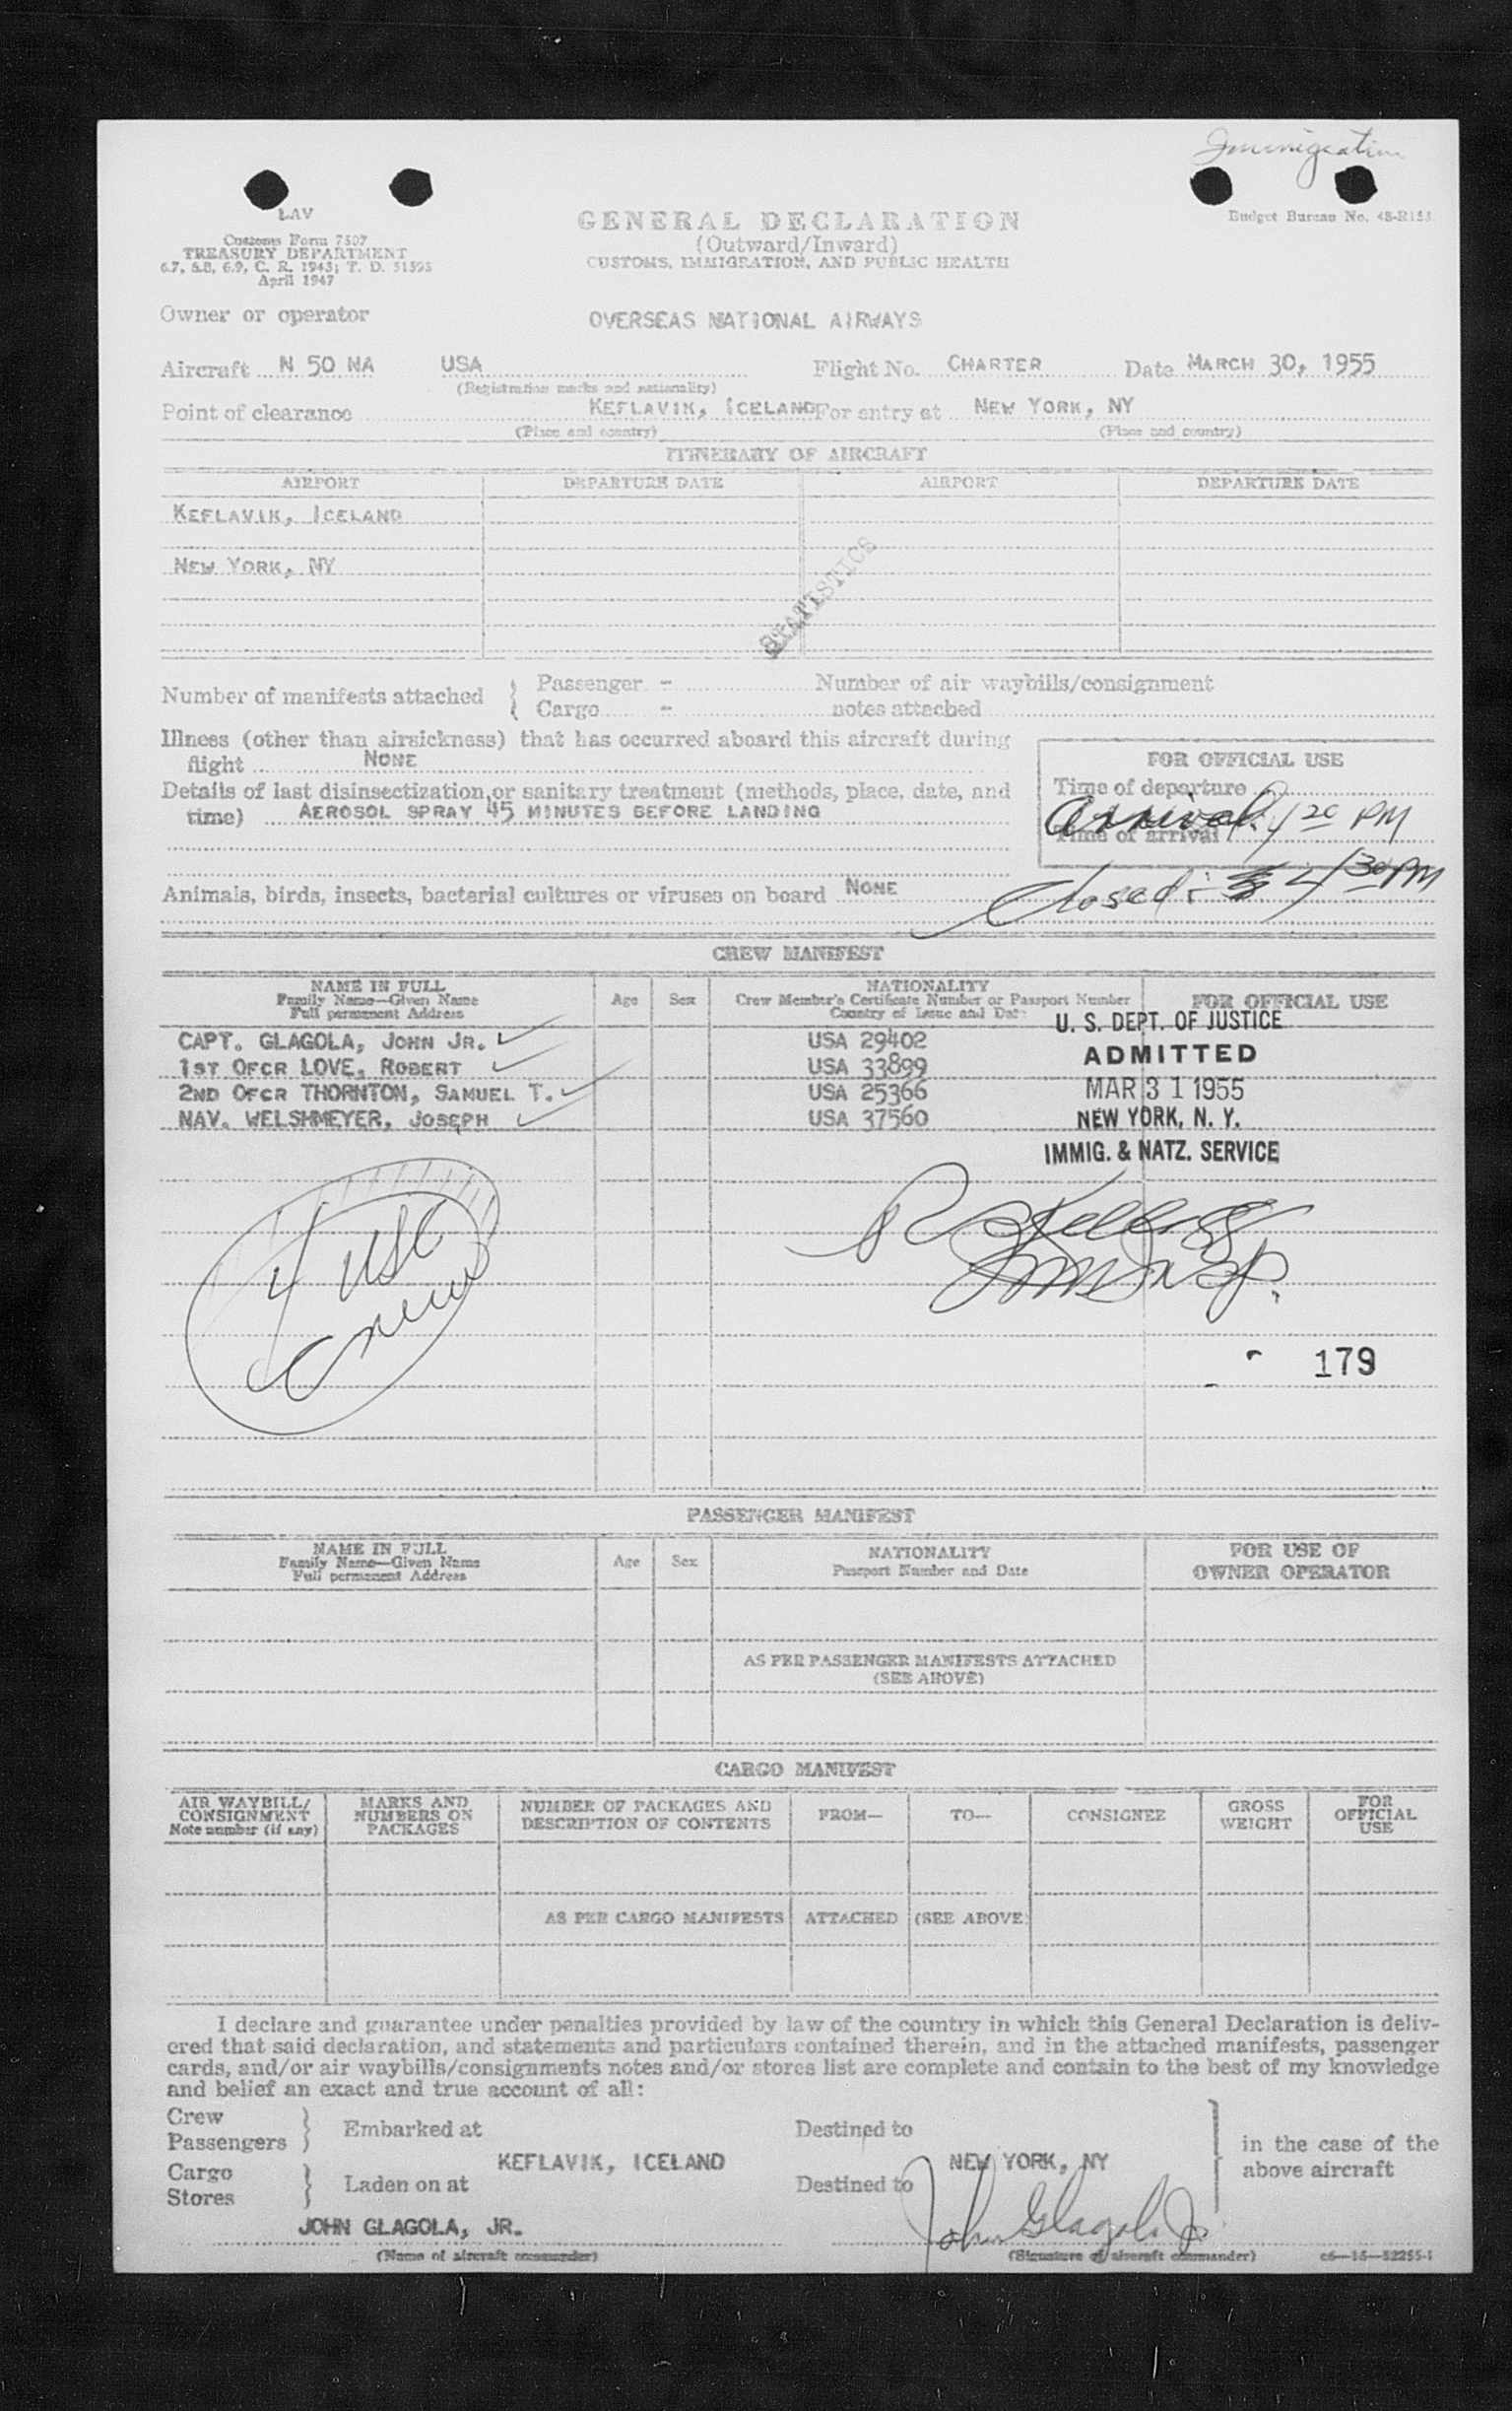 Immigration
LAV
Customs Form 7507
TREASURY DEPARTMENT
6.7, 6.8, 6.9, C. R. 1943; T. D. 51595
April 1947
GENERAL DECLARATION
(Outward/Inward)
CUSTOMS, IMMIGRATION, AND PUBLIC HEALTH
Budget Bureau No. 48-R153
Owner or operator OVERSEAS NATIONAL AIRWAYS
Aircraft N 50 NA USA Flight No. CHARTER Date MARCH 30, 1955
(Registration marks and nationality)
Point of clearance KEFLAVIK, ICELAND For entry at NEW YORK, NY
(Place and country) (Place and country)
ITINERARY OF AIRCRAFT
AIRPORT DEPARTURE DATE AIRPORT DEPARTURE DATE
KEFLAVIK, ICELAND
NEW YORK, NY
STATISTICS
Number of manifests attached { Passenger - Number of air waybills/consignment
Cargo - notes attached
Illness (other than airsickness) that has occurred aboard this aircraft during
flight NONE
Details of last disinsectization or sanitary treatment (methods, place, date, and
time) AEROSOL SPRAY 45 MINUTES BEFORE LANDING
FOR OFFICIAL USE
Time of departure
Arrival: 4 20 PM
Time of arrival
Closed: 4 30 PM
Animals, birds, insects, bacterial cultures or viruses on board NONE
CREW MANIFEST
NAME IN FULL
Family Name—Given Name
Full permanent Address
Age Sex
NATIONALITY
Crew Member's Certificate Number or Passport Number
Country of Issue and Date
FOR OFFICIAL USE
CAPT. GLAGOLA, JOHN JR. USA 29402
1ST OFCR LOVE, ROBERT USA 33899
2ND OFCR THORNTON, SAMUEL T. USA 25366
NAV. WELSHMEYER, JOSEPH USA 37560
U. S. DEPT. OF JUSTICE
ADMITTED
MAR 31 1955
NEW YORK, N. Y.
IMMIG. & NATZ. SERVICE
4 USC
crew
179
PASSENGER MANIFEST
NAME IN FULL
Family Name—Given Name
Full permanent Address
Age Sex
NATIONALITY
Passport Number and Date
FOR USE OF
OWNER OPERATOR
AS PER PASSENGER MANIFESTS ATTACHED
(SEE ABOVE)
CARGO MANIFEST
AIR WAYBILL/
CONSIGNMENT
Note number (if any)
MARKS AND
NUMBERS ON
PACKAGES
NUMBER OF PACKAGES AND
DESCRIPTION OF CONTENTS
FROM— TO— CONSIGNEE
GROSS
WEIGHT
FOR
OFFICIAL
USE
AS PER CARGO MANIFESTS ATTACHED (SEE ABOVE)
I declare and guarantee under penalties provided by law of the country in which this General Declaration is deliv-
ered that said declaration, and statements and particulars contained therein, and in the attached manifests, passenger
cards, and/or air waybills/consignments notes and/or stores list are complete and contain to the best of my knowledge
and belief an exact and true account of all:
Crew
Passengers } Embarked at Destined to
KEFLAVIK, ICELAND NEW YORK, NY
Cargo
Stores } Laden on at Destined to
in the case of the
above aircraft
JOHN GLAGOLA, JR. John Glagola Jr.
(Name of aircraft commander) (Signature of aircraft commander) c6—16—52255-1